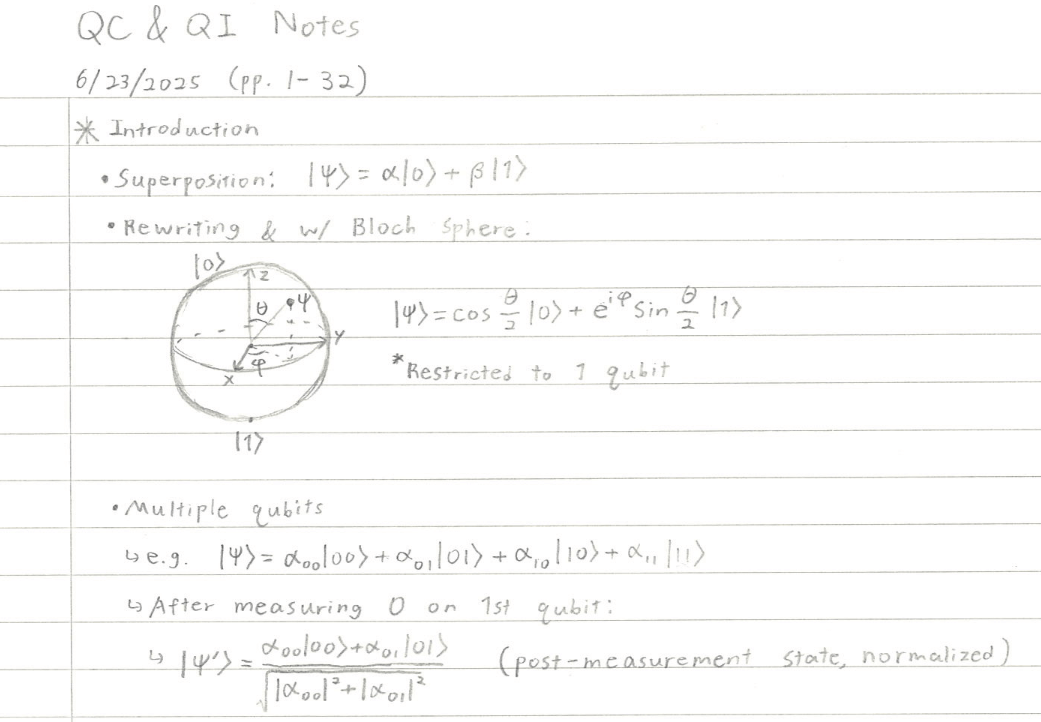 QC & QI Notes
6/23/2025 (pp. 1-32)
* Introduction
• Superposition: |ψ⟩ = α|0⟩ + β|1⟩
• Rewriting & w/ Bloch Sphere:
|0⟩
z
θ
ψ
|ψ⟩ = cos θ/2 |0⟩ + e^{iφ} sin θ/2 |1⟩
y
φ
x
*Restricted to 1 qubit
|1⟩
• Multiple qubits
↳ e.g. |ψ⟩ = α₀₀|00⟩ + α₀₁|01⟩ + α₁₀|10⟩ + α₁₁|11⟩
↳ After measuring 0 on 1st qubit:
↳ |ψ'⟩ = (α₀₀|00⟩+α₀₁|01⟩)/√(|α₀₀|²+|α₀₁|²) (post-measurement state, normalized)